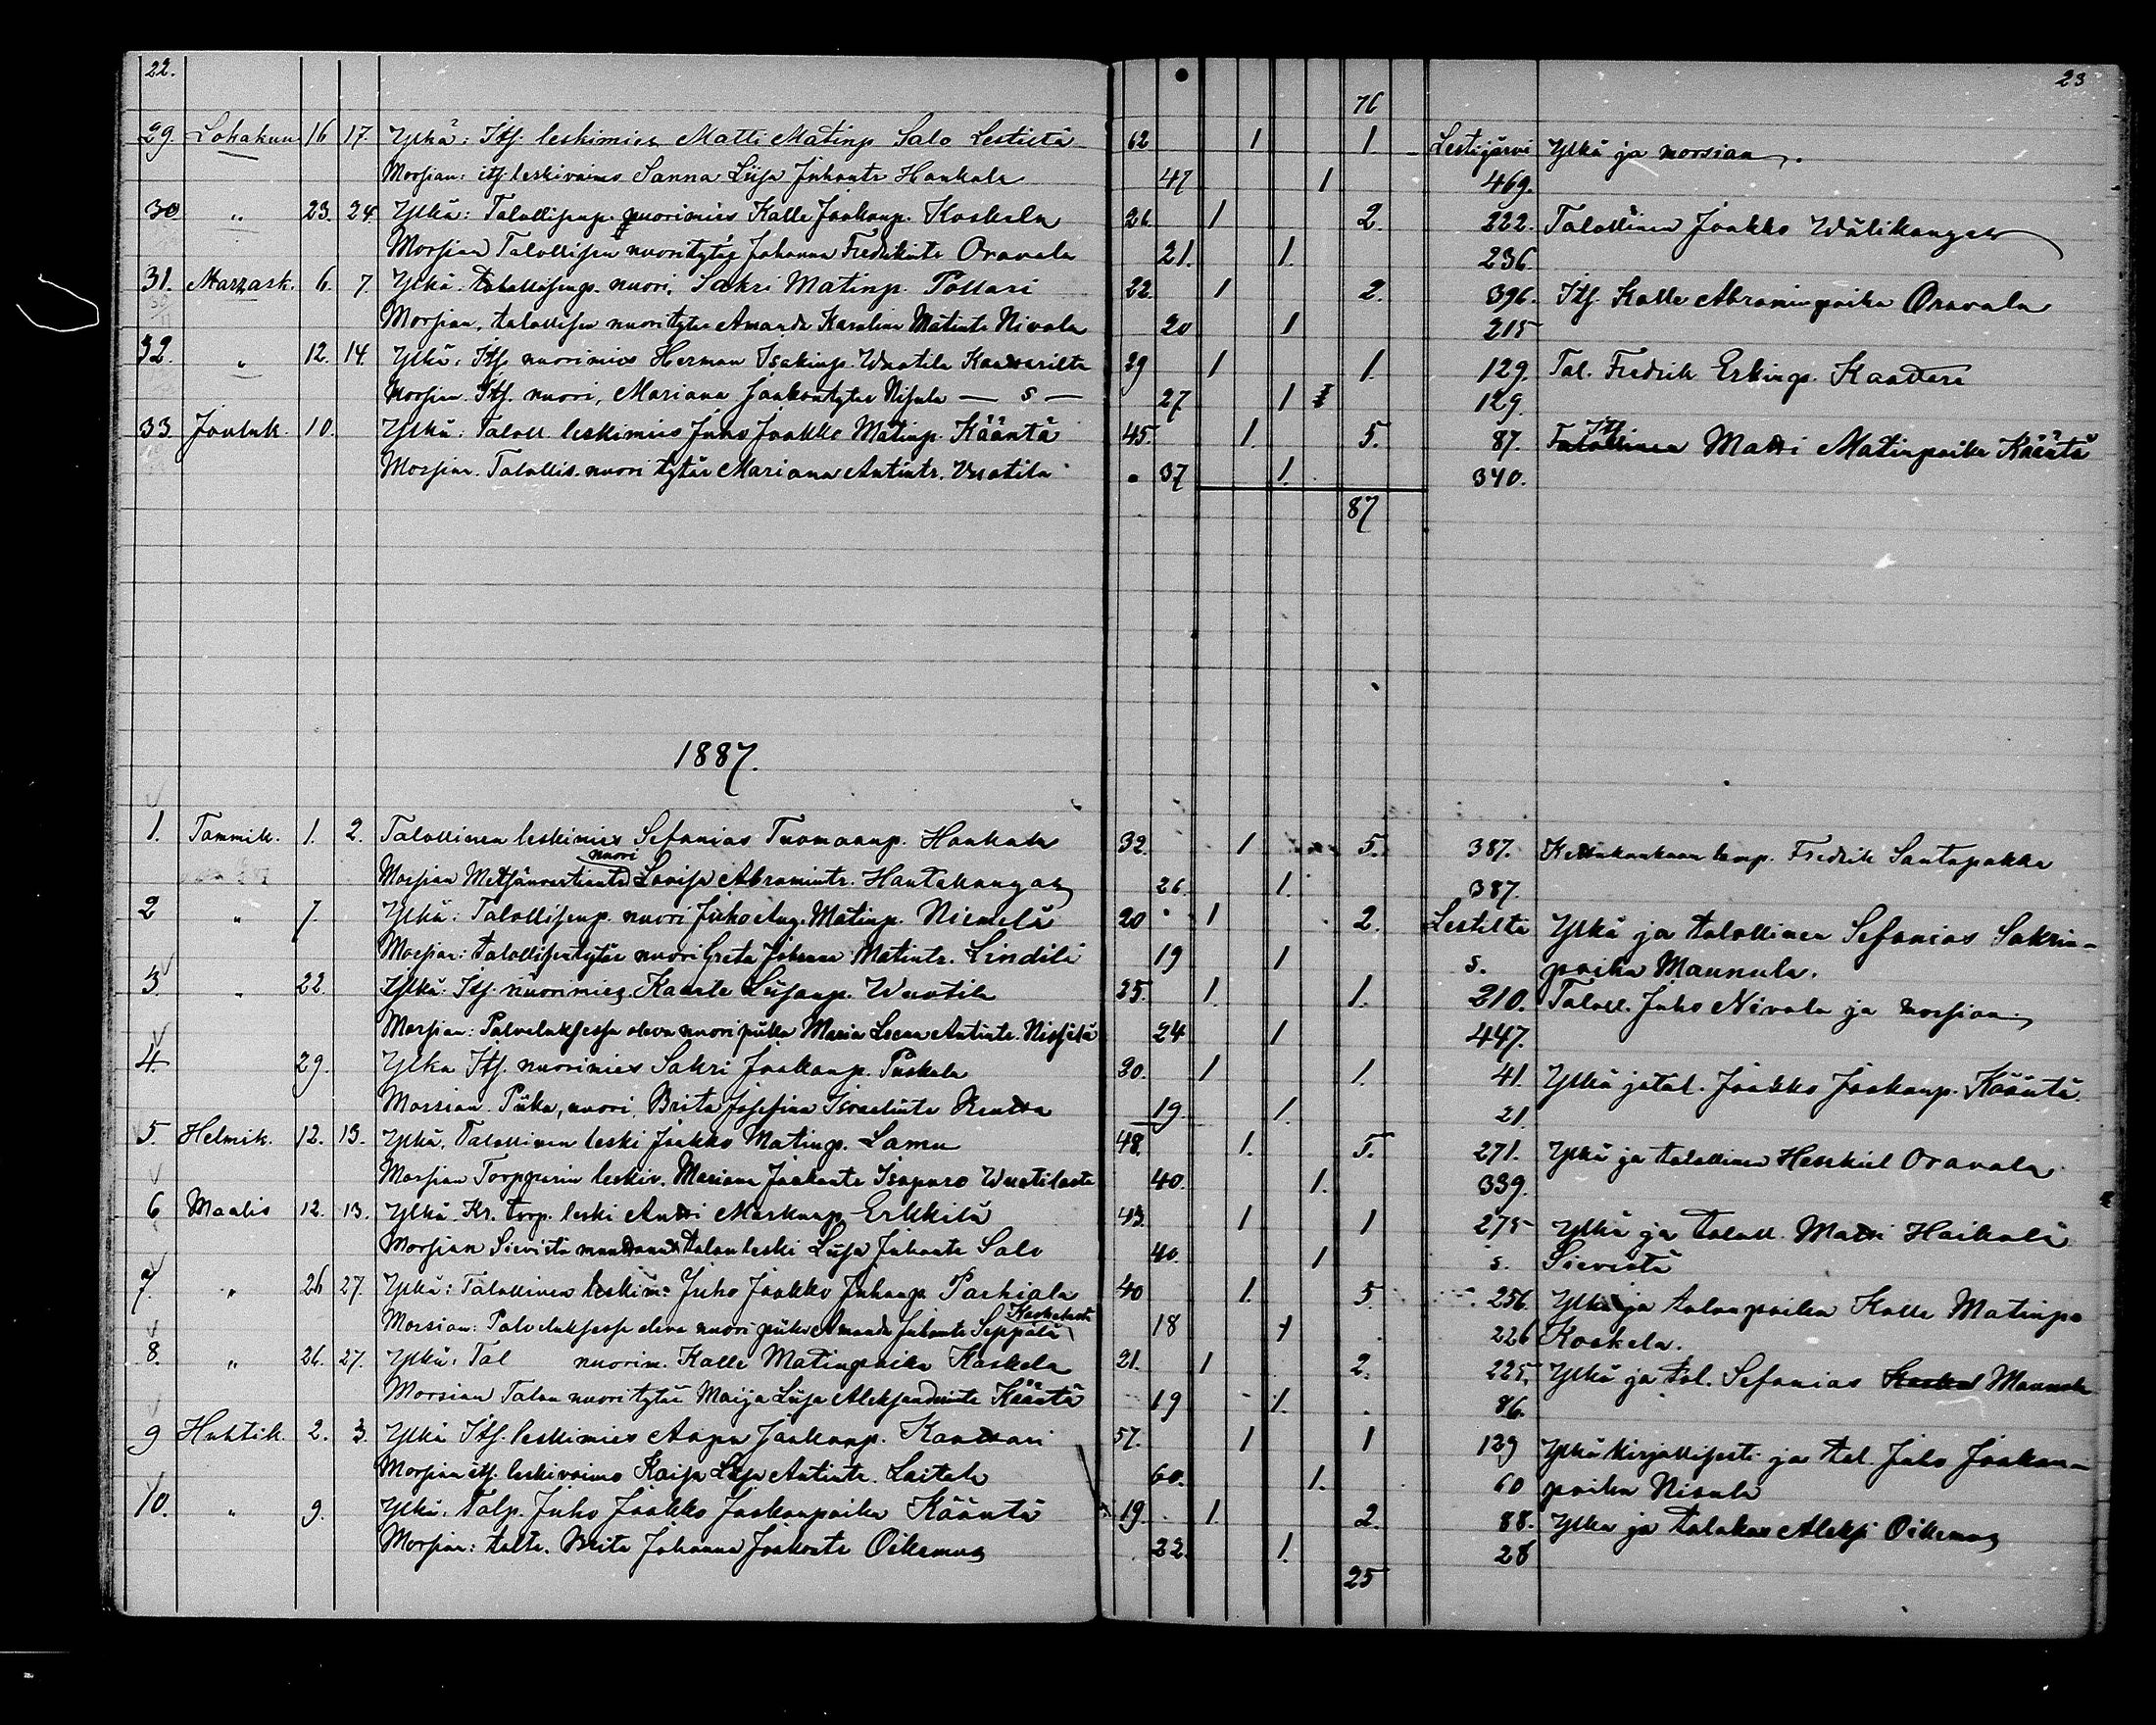 22.
23
76
29. Lokakuu 16 17. Ylkä: Itf. leskimies Matti Matinp Salo Lestiltä 62 1 1 Lestijärvi Ylkä ja morsian.
Morsian: itf. leskivaimo Sanna Liisa Juhontr Haukala 47 1 469.
30 " 23. 24. Ylkä: Talollisenp. nuorimies Kalle Jaakonp. Koskela 26 1 2. 222. Talollinen Jaakko Wälikangas
Morsian Talollisen nuori tytär Johanna Fredrikintr Oravala 21. 1. 236.
31. Marrask. 6. 7. Ylkä. talollisenp. nuori. Sakri Matinp. Pollari 22. 1 2. 396. Itf. Kalle Abraminpoika Oravala
Morsian, talollisen nuori tytär Amanda Karolina Matintr Nivala 20 1 215
32. " 12. 14. Ylkä, Itf. nuorimies Herman Isakinp. Wuotila Kanttarilta 29 1 1. 129. Tal. Fredrik Erkinp. Kanttari
Morsian. Itf. nuori, Mariana Jaakontytär Nisula — s — 27 1 129.
33. Jouluk. 10. Ylkä: Taloll. leskimies Juho Jaakko Matinp. Kääntä 45. 1. 5. 87. Itf. Matti Matinpoika Kääntä
Morsian. Talollis. nuori tytär Mariana Antintr. Wuotila 37 1. 340.
87
1887.
1. Tammik. 1. 2. Talollinen leskimies Sefanias Tuomaanp. Haukala 32. 1 5. 387. Kestukankaan lamp. Fredrik Santapakka
Morsian Metsänvartiantr nuori Lovisa Abramintr. Hautakangas 26. 1. 387.
2 " 7. Ylkä: Talollisenp. nuori Juho Aug. Matinp. Niemelä 20 1 2. Lestiltä Ylkä ja talollinen Sefanias Sakrin-
Morsian: talollisen tytär nuori Greta Johanna Matintr. Lindili 19 1 s. poika Mannula.
3. " 22. Ylkä: Itf. nuorimies Kaarle Liisanp. Wuotila 25. 1. 1. 210. Taloll. Juho Nivala ja morsian.
Morsian: Palveluksessa oleva nuori piika Maria Leena Antintr. Nissilä 24 1 447.
4. 29. Ylkä Itf. nuorimies Sakri Jaakonp. Puskala 20. 1 1. 41. Ylkä ja tal. Jaakko Jaakonp. Kääntä.
Morsian. Piika, nuori, Brita Josefina Israelintr 19. 1. 21
5. Helmik. 12. 13. Ylkä, Talollinen leski Jaakko Matinp. Lamu 48. 1. 5. 271. Ylkä ja talollinen Heskiel Oravala
Morsian Torpparin leskiv. Mariana Jaakontr Isopuro Wuotilasta 40. 1. 339.
6 Maalis 12. 13. Ylkä. Kr. torp. leski Antti Markunp Erkkilä 43. 1 1 275 Ylkä ja taloll. Matti Haikola
Morsian Sievistä muuttanut talon leski Liisa Juhontr Salo 40. 1 s. Sievistä
7. " 26 27. Ylkä: Talollinen leskim: Juho Jaakko Juhonp Parhiala 40 1. 5. 256. Ylkä ja talonpoika Kalle Matinpo
Morsian: Palveluksessa oleva nuori piika Amanda Juhontr Seppälä 18 1 226 Koskela.
8. " 26. 27. Ylkä, Tal nuorim. Kalle Matinpoika Koskela 21. 1 2. 225. Ylkä ja tal. Sefanias Mannula
Morsian Talon nuori tytär Maija Liisa Aleksandrintr Kääntä 19 1. 86.
9 Huhtik. 2. 3. Ylkä Itf. leskimies Aapu Jaakonp. Kanttari 57. 1 1 129 Ylkä kirjallisesti ja tal. Juho Jaakon-
Morsian itf. leskivaimo Kaisa Liisa Antintr. Laitala 60. 1. 60 poika Nisula
10. " 9. Ylkä, Talp. Juho Jaakko Jaakonpoika Kääntä 19. 1. 2. 88. Ylkä ja talokas Aleksi Oikemus
Morsian: taltr. Brita Johanna Jaakontr Oikemus 22. 1. 28
25